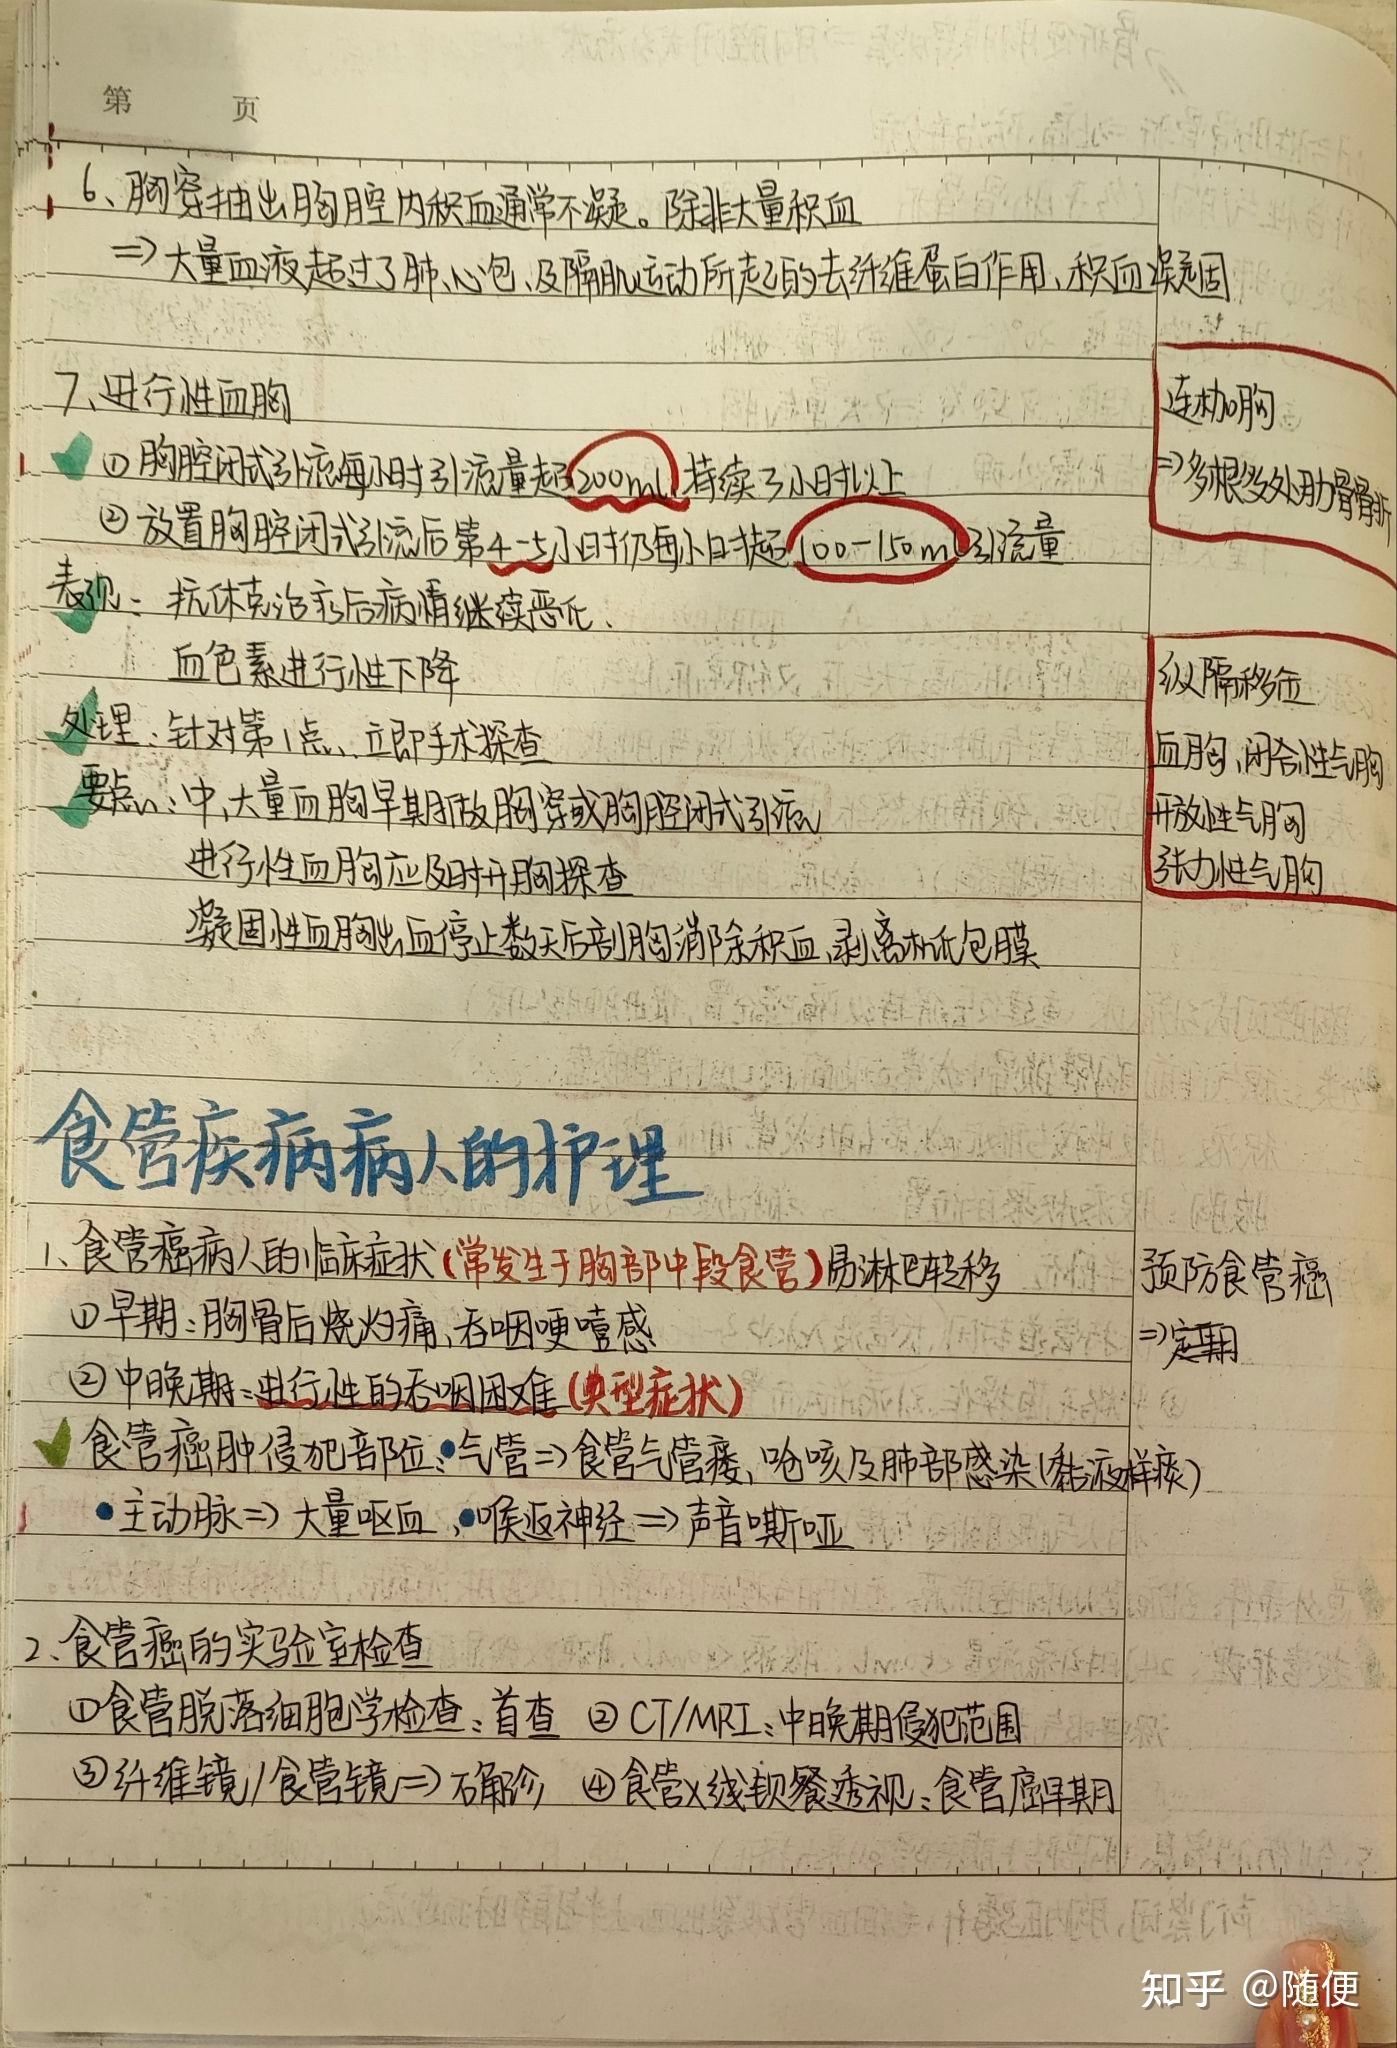 第 页
6、胸穿抽出胸腔内积血通常不凝。除非大量积血
=> 大量血液超过了肺、心包、及膈肌运动所起的去纤维蛋白作用、积血凝固
7、进行性血胸
① 胸腔闭式引流每小时引流量超200ml,持续3小时以上
② 放置胸腔闭式引流后第4-5小时仍每小时超100-150ml引流量
表现:抗休克治疗后病情继续恶化、
血色素进行性下降
处理:针对第1点、立即手术探查
要点:中、大量血胸早期行放胸穿或胸腔闭式引流
进行性血胸应及时开胸探查
凝固性血胸出血停止数天后剖胸消除积血、剥离机化包膜
连枷胸
=> 多根多处肋骨骨折
纵隔移位
血胸、闭合性气胸
开放性气胸
张力性气胸
食管疾病病人的护理
1、食管癌病人的临床症状(常发生于胸部中段食管)易淋巴转移
① 早期:胸骨后烧灼痛、吞咽哽噎感
② 中晚期:进行性的吞咽困难(典型症状)
食管癌肿侵犯部位:•气管=>食管气管瘘、呛咳及肺部感染(黏液样痰)
•主动脉=>大量呕血、•喉返神经=>声音嘶哑
预防食管癌
=> 定期
2、食管癌的实验室检查
①食管脱落细胞学检查:首查 ② CT/MRI:中晚期侵犯范围
③纤维镜/食管镜=>确诊 ④食管X线钡餐透视:食管癌早期
知乎 @随便